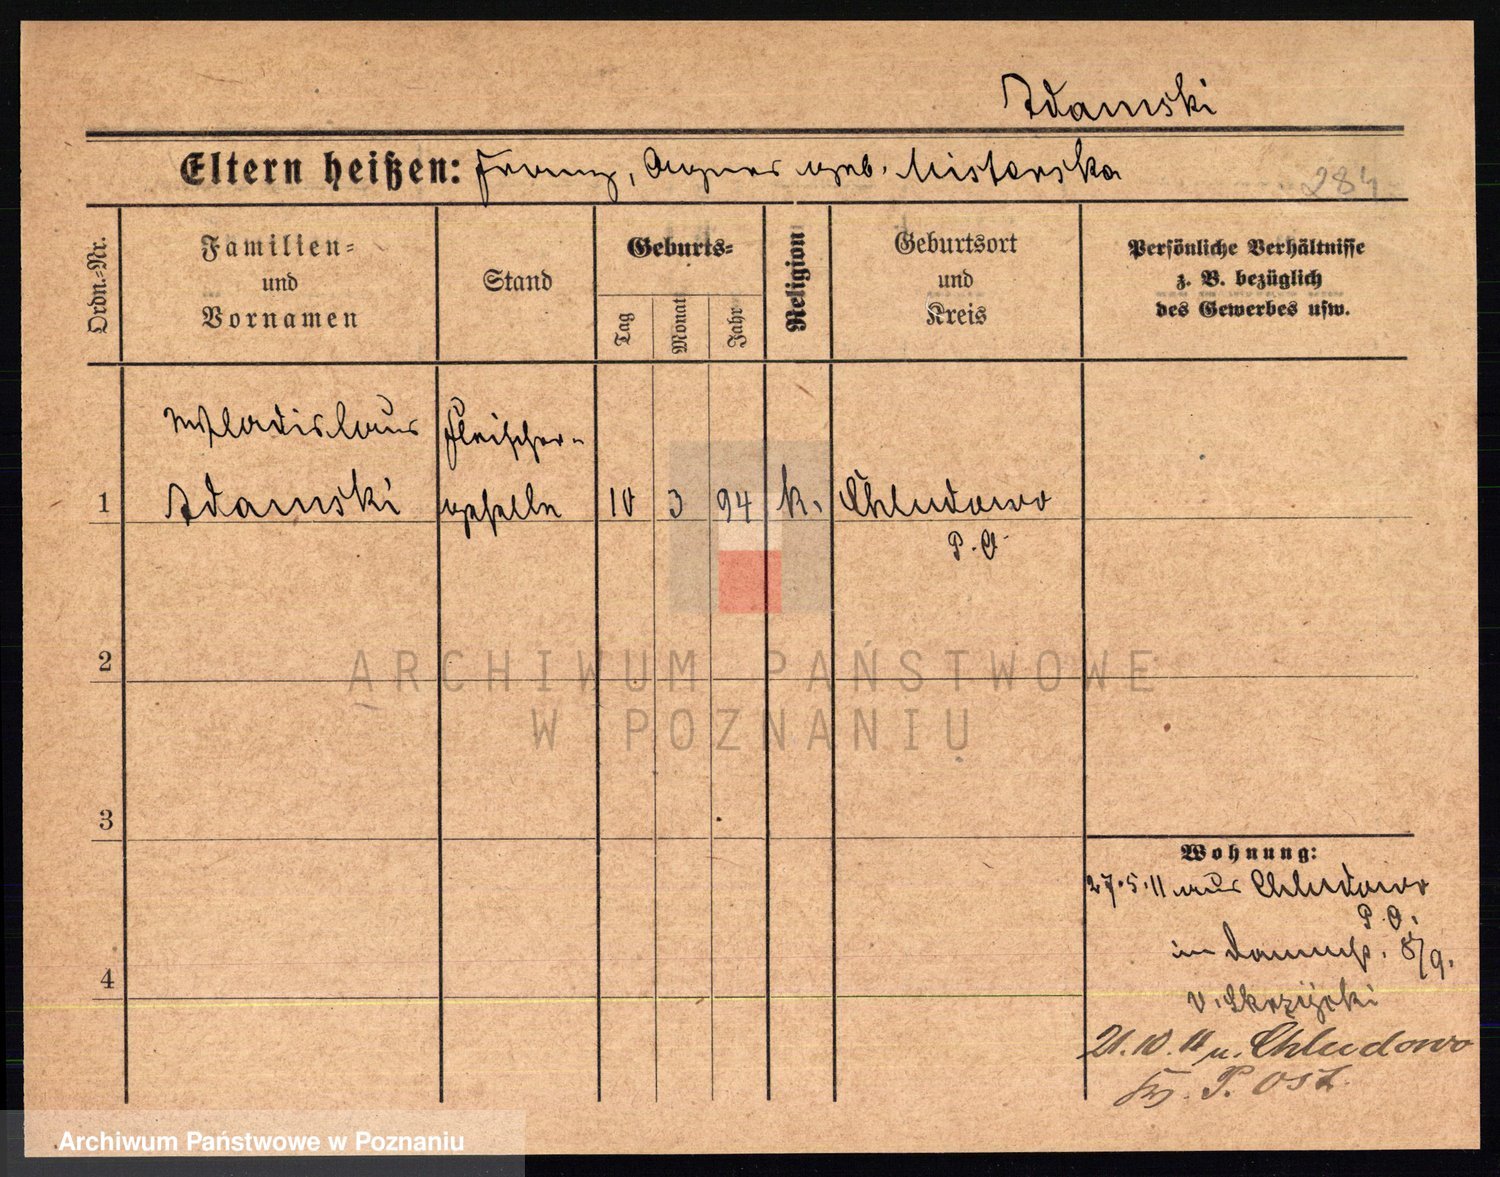 Adamski
Eltern heißen: Franz, Agnes geb. Misterska
284
Ordn.=Nr.
Familien=
und
Vornamen
Stand
Geburts=
Tag
Monat
Jahr
Religion
Geburtsort
und
Kreis
Persönliche Verhältnisse
z. B. bezüglich
des Gewerbes usw.
Wladislaus Fleischer-
1 Adamski geselle 10 3 94 k. Chludowo
P. O
2
ARCHIWUM PAŃSTWOWE
W POZNANIU
3
Wohnung:
27.5.11 aus Chludowo
P. O.
4
im 8/9.
v.
21.10.11 n. Chludowo
Kr. P. Ost.
Archiwum Państwowe w Poznaniu